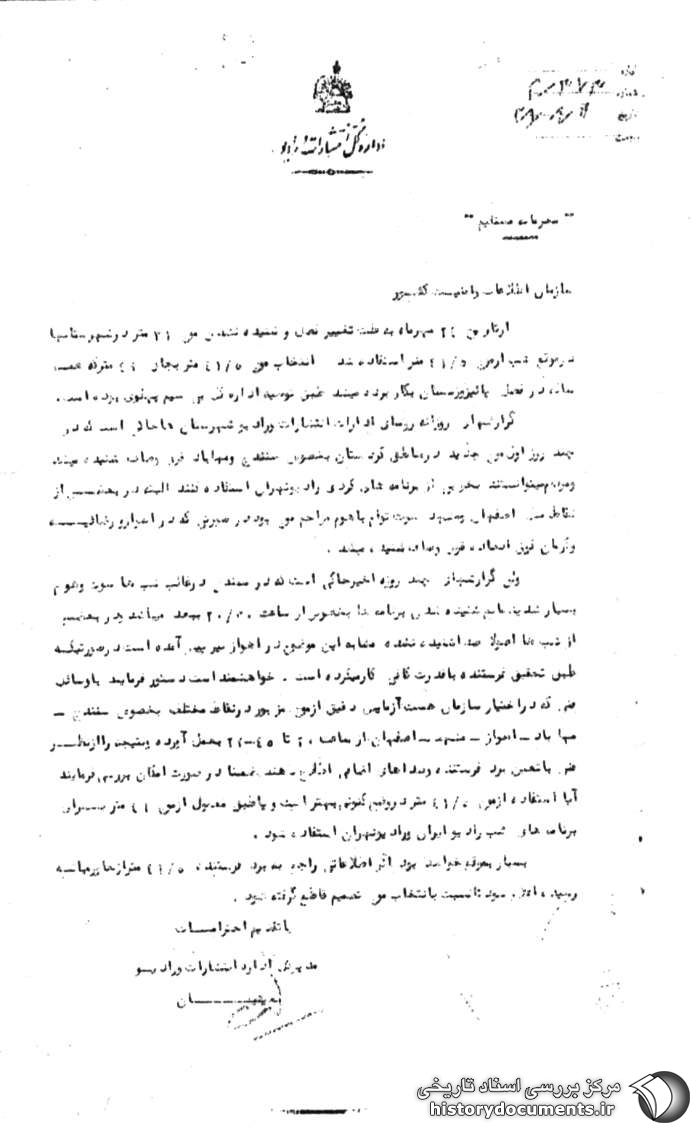 اداره کل انتشارات و رادیو
شماره
تاریخ
پیوست
" محرمانه مستقیم "
سازمان اطلاعات و امنیت کشور
از تاریخ ۲۴ مهرماه به علت تغییر فصل و شنیده نشدن موج ۳۱ متر در شهرستانها
در موقع شب از موج ۴۱/۵ متر استفاده شد انتخاب موج ۴۱/۵ متر بجای متر که همه
ساله در فصل پائیز و زمستان بکار برده میشد طبق توصیه اداره کل بی سیم پهلوی بوده است .
گزارشهای روزانه روسای ادارات انتشارات و رادیو شهرستان ها حاکی است که در
چند روز اول موج جدید در مناطق کردستان بخصوص سنندج و مهاباد قوی و صاف شنیده میشد
و مردم میتوانستند بخوبی از برنامه های کردی رادیو تهران استفاده کنند البته در بعضی از
نقاط مثل اصفهان و مشهد سوت توام با هوم مزاحم موج بود در صورتی که در اهواز و رضائیه
و کرمان فوق العاده قوی و صاف شنیده میشد .
ولی گزارشهای چند روزه اخیر حاکی است که در سنندج در غالب شب ها سوت و هوم
بسیار شدید مانع شنیده شدن برنامه ها بخصوص از ساعت ۲۰/۳۰ ببعد میباشد و در بعضی
از شب ها اصولا صدا شنیده نشده مشابه این موضوع در اهواز نیز پیش آمده است در صورتیکه
طبق تحقیق فرستنده با قدرت کافی کار میکرده است . خواهشمند است دستور فرمایند با وسائل
فنی که در اختیار سازمان هست آزمایش دقیق از موج مزبور در نقاط مختلف بخصوص سنندج -
مهاباد - اهواز - مشهد - اصفهان از ساعت تا ۴۵-۲۲ بعمل آورده و نتیجه را از نظر
فنی با تعیین برد فرستنده و صداهای اضافی اطلاع دهند ضمنا در صورت امکان بررسی فرمایند
آیا استفاده از موج ۴۱/۵ متر در وضع کنونی بهتر است و یا طبق معمول از موج متر برای
برنامه های شب رادیو ایران و رادیو تهران استفاده شود .
بسیار بموقع خواهد بود اگر اطلاعاتی راجع به برد فرستنده ۴۱/۵ متر از خارج
رسیده اعلام شود تا نسبت بانتخاب موج تصمیم قاطع گرفته شود .
با تقدیم احترامات
مدیر کل اداره انتشارات و رادیو
معینیان
مرکز بررسی اسناد تاریخی
historydocuments.ir